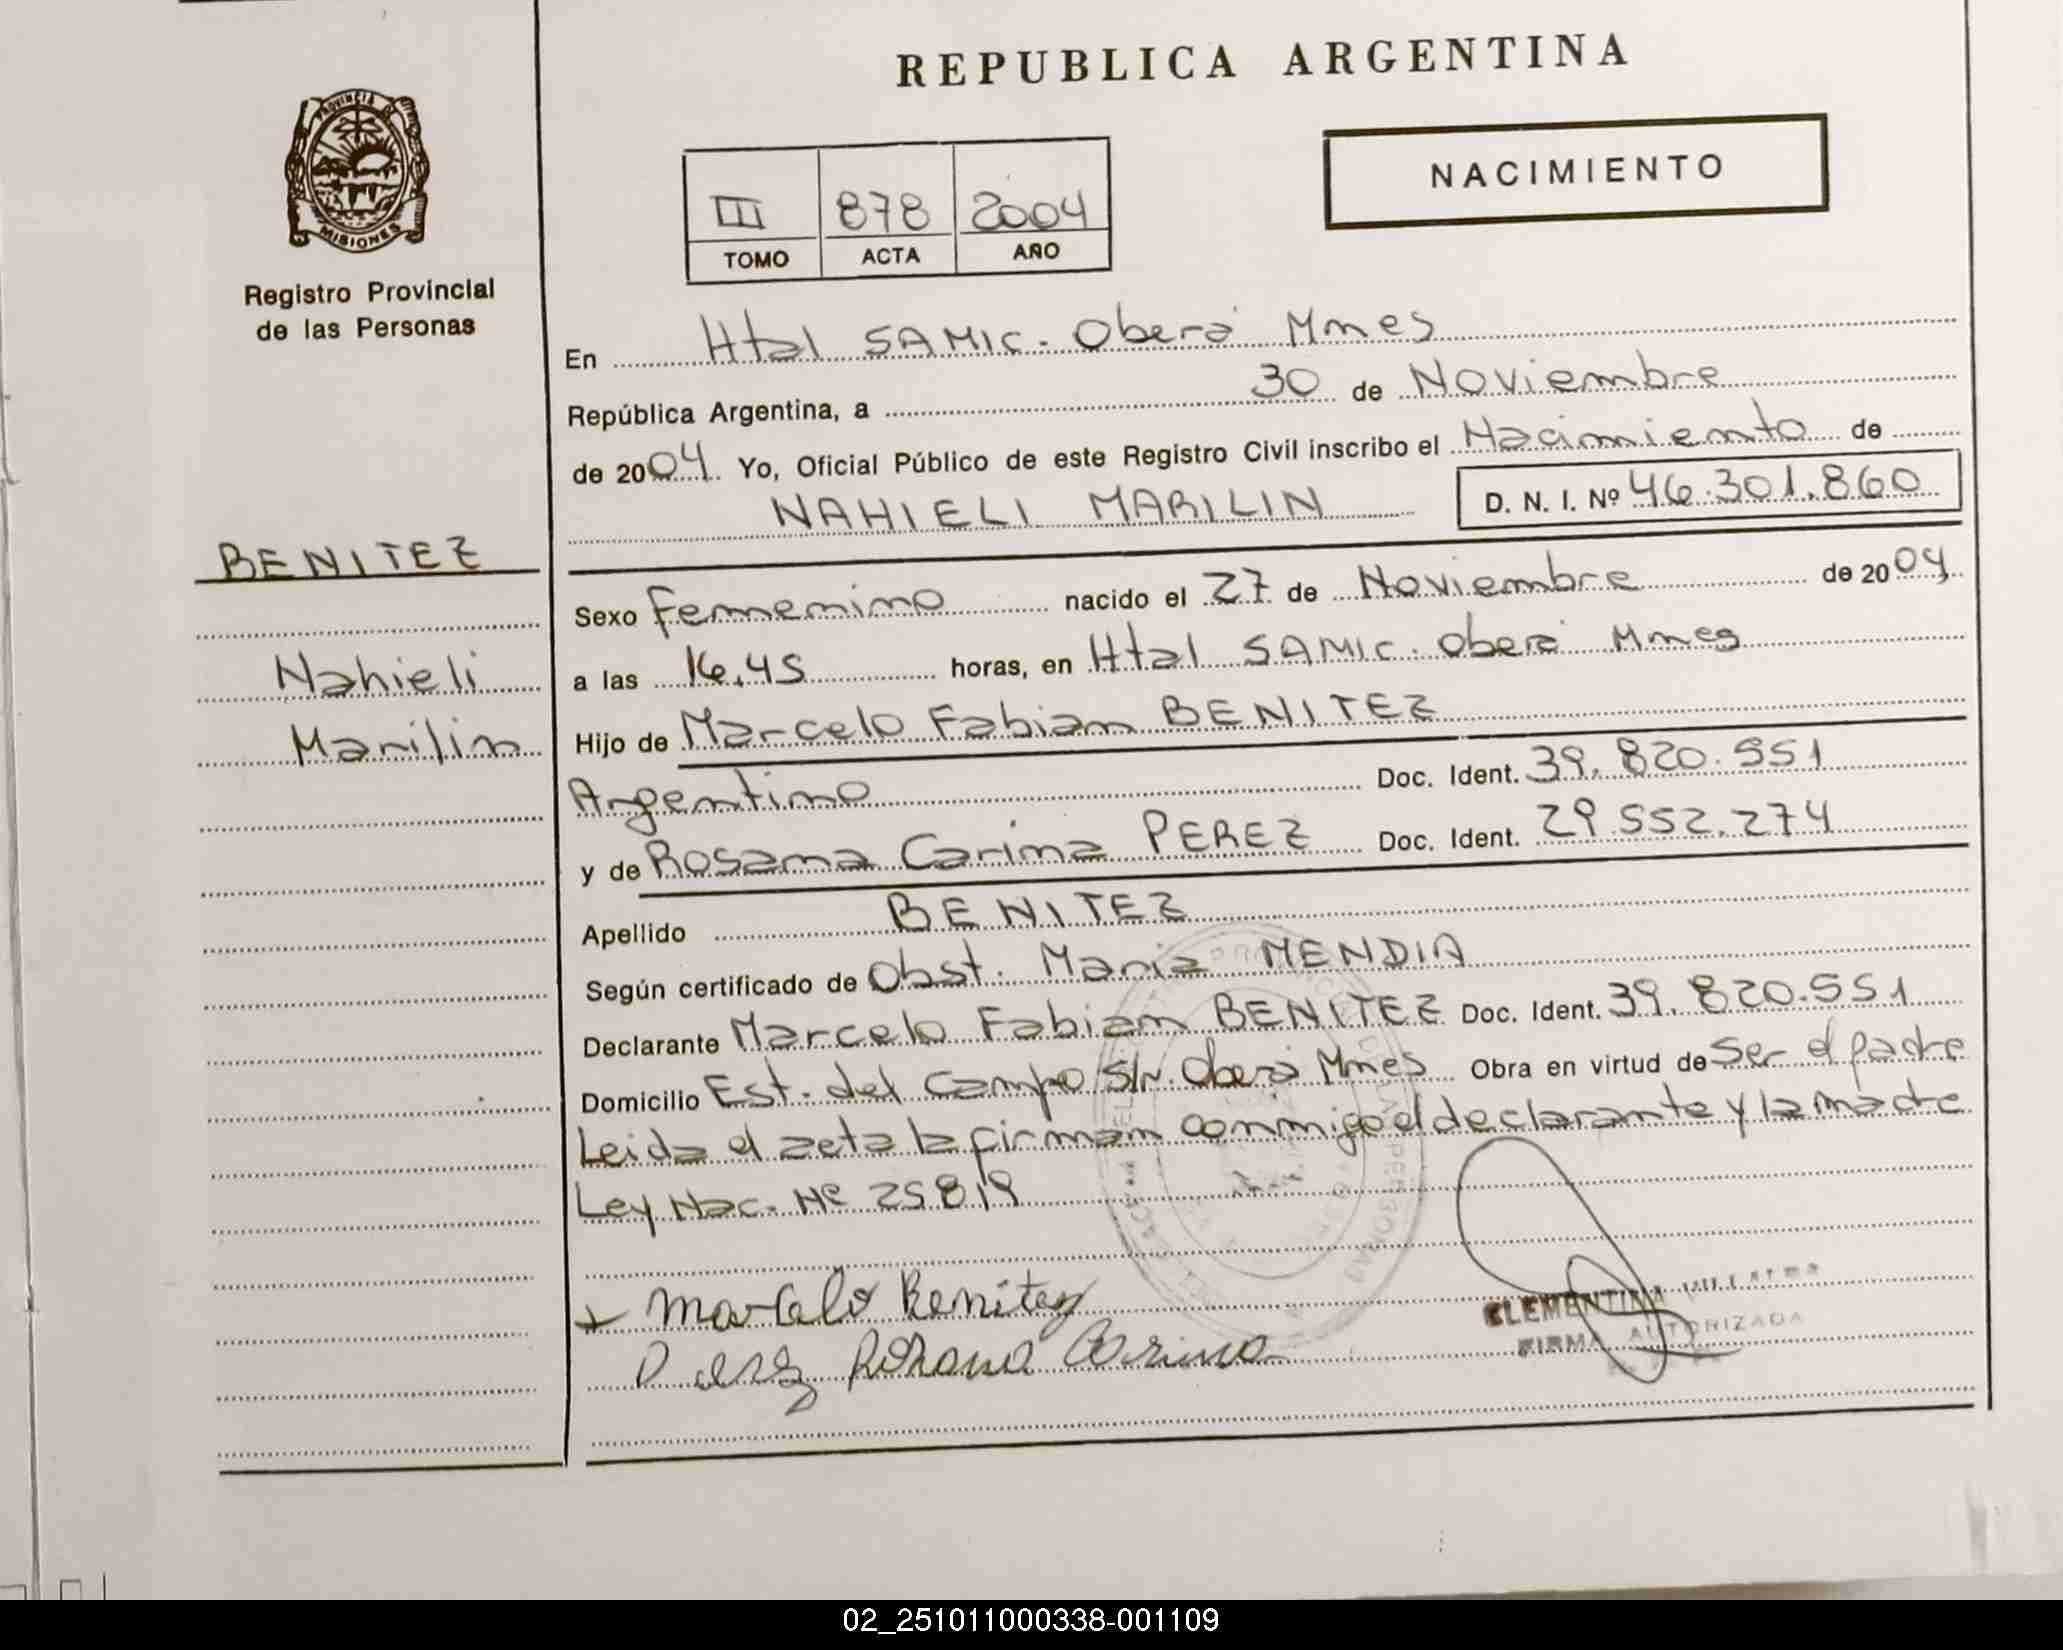 REPUBLICA ARGENTINA
PROVINCIA DE
MISIONES
Registro Provincial
de las Personas
NACIMIENTO
III 878 2004
TOMO ACTA AÑO
En Htal SAMIC. Oberá Mnes
República Argentina, a 30 de Noviembre
de 2004. Yo, Oficial Público de este Registro Civil inscribo el Nacimiento de
NAHIELI MARILIN D. N. I. Nº 46.301.860
BENITEZ
Nahieli
Marilin
Sexo Femenino nacido el 27 de Noviembre de 2004
a las 16,45 horas, en Htal SAMIC. Oberá Mnes
Hijo de Marcelo Fabian BENITEZ
Argentino Doc. Ident. 39.820.551
y de Rosana Carina PEREZ Doc. Ident. 29.552.274
Apellido BENITEZ
Según certificado de Obst. Maria MENDIA
Declarante Marcelo Fabian BENITEZ Doc. Ident. 39.820.551
Domicilio Est. del Campo S/N. Oberá Mnes Obra en virtud de Ser el padre
Leida el acta la firman conmigo el declarante y la madre
Ley Nac. Nº 25819
Marcelo Benitez
Perez Rosana Carina
CLEMENTINA
FIRMA AUTORIZADA
02_251011000338-001109